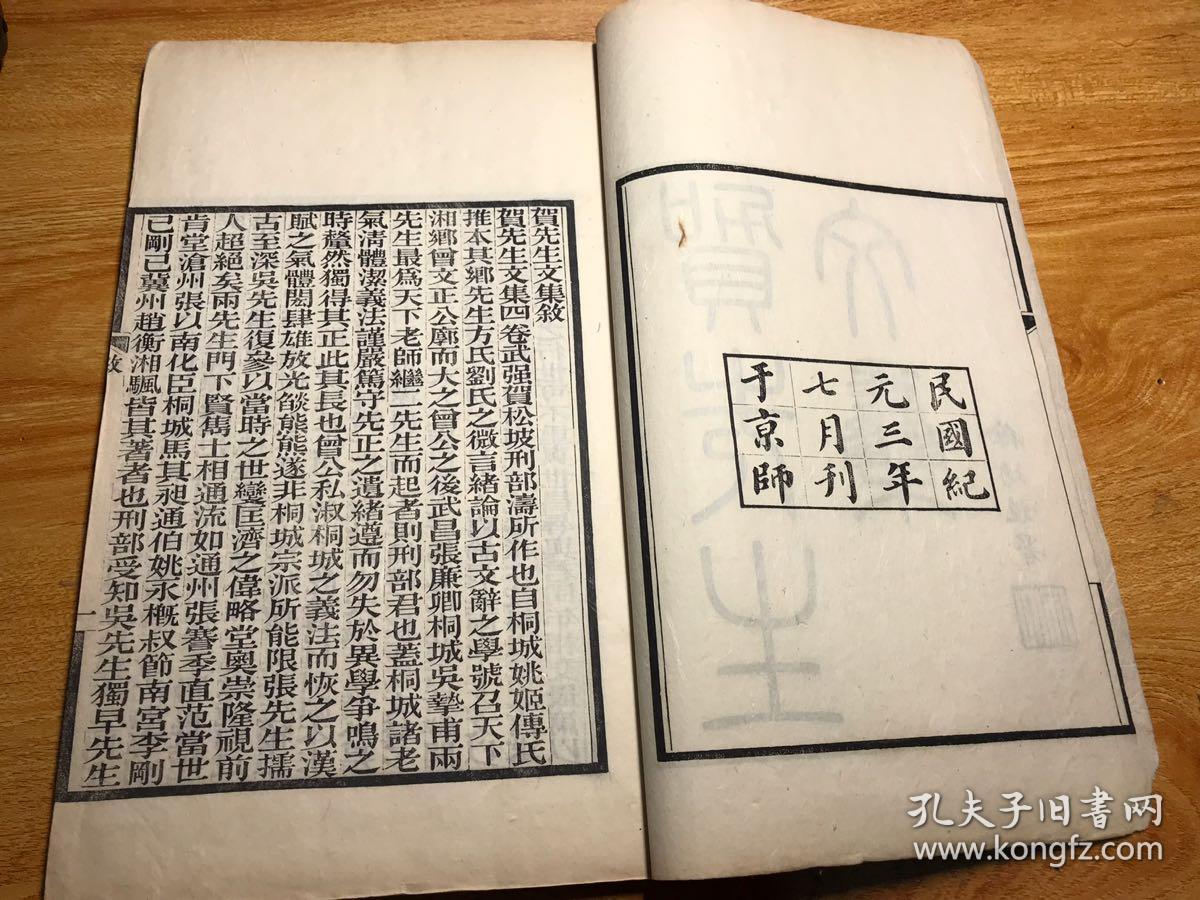 民國紀
元三年
七月刊
于京師
賀先生文集敘
賀先生文集四卷武强賀松坡刑部濤所作也自桐城姚姬傳氏
推本其鄉先生方氏劉氏之微言緒論以古文辭之學號召天下
湘鄉曾文正公廓而大之曾公之後武昌張廉卿桐城吳摯甫兩
先生最爲天下老師繼二先生而起者則刑部君也蓋桐城諸老
氣淸體潔義法謹嚴篤守先正之遺緒遵而勿失於異學爭鳴之
時犛然獨得其正此其長也曾公私淑桐城之義法而恢之以漢
賦之氣體閎肆雄放光燄熊熊遂非桐城宗派所能限張先生擩
古至深吳先生復參以當時之世變匡濟之偉略堂奧崇隆視前
人超絕矣兩先生門下賢雋士相通流如通州張謇季直范當世
肯堂滄州張以南化臣桐城馬其昶通伯姚永槪叔節南宮李剛
己剛己冀州趙衡湘颿皆其著者也刑部受知吳先生獨早先生
敘
一
孔夫子旧書网
www.kongfz.com